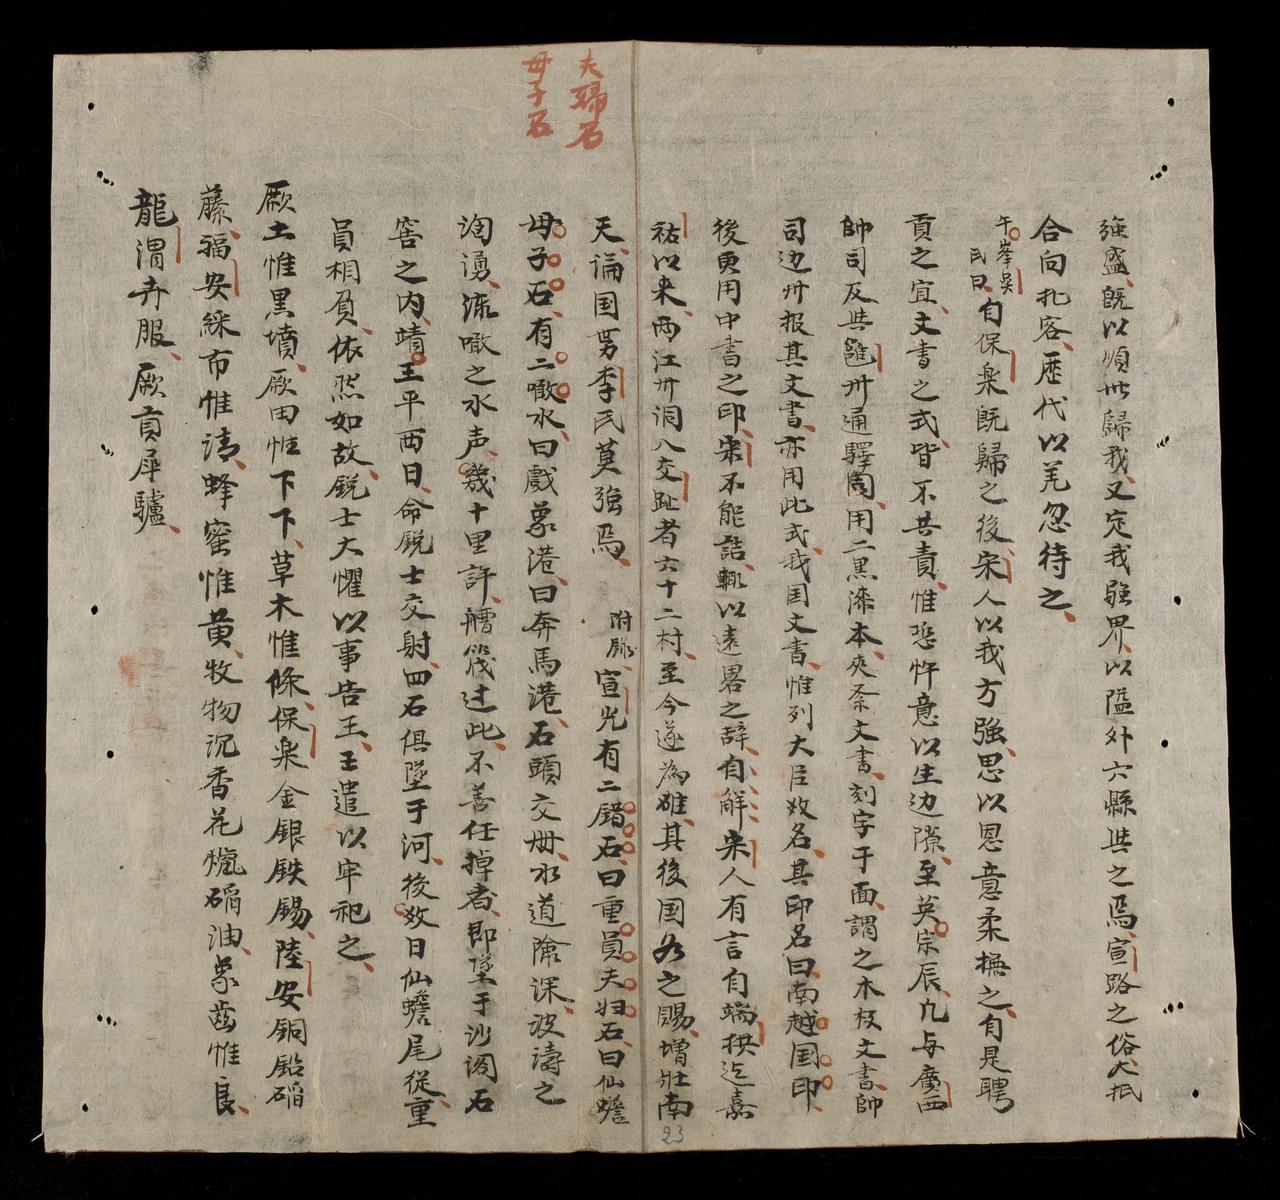 強盛既以順州歸我又定我強界以隘外六縣與之焉宣路之俗大抵
合向扎客歷代以羌忽待之
午峯吳民曰自保樂既歸之後宋人以我方強思以恩意柔撫之自是聘
貢之宜文書之式皆不共責惟恐忤意以生边隙至英宗辰凡与廣西
帥司及其邕州通驛闻用二黑漆本夾系文書刻字于面謂之木杈文書帥
司边州报其文書亦用此式我国文書惟列大臣数名其印名曰南越国印
後更用中書之印宋不能詰輒以遠畧之辞自解宋人有言自端拱迄嘉
祐以来两江州洞入交趾者六十二村至今遂為雄其後国公之賜增壯南
天論国勇李氏莫強焉
附錄宣光有二錯石曰重員夫妇石曰仙蟾
母子石有二噉水曰戲象港曰奔馬港石頭交毋水道險深波濤之
洶湧流噉之水声幾十里許艚筏过此不善任掉者即墜于沙阁石
窖之内靖王平西日命銳士交射四石俱墜于河後数日仙蟾尾從重
員相負依然如故銳士大懼以事告王王遣以牢祀之
厥土惟黒墳厥田惟下下草木惟條保樂金銀鉄錫陸安銅鉛硝
藤福安綵布惟清蜂蜜惟黄牧物沉香花爐硝油象齒惟良
龍渭卉服厥貢犀驢
夫婦石
母子石
23